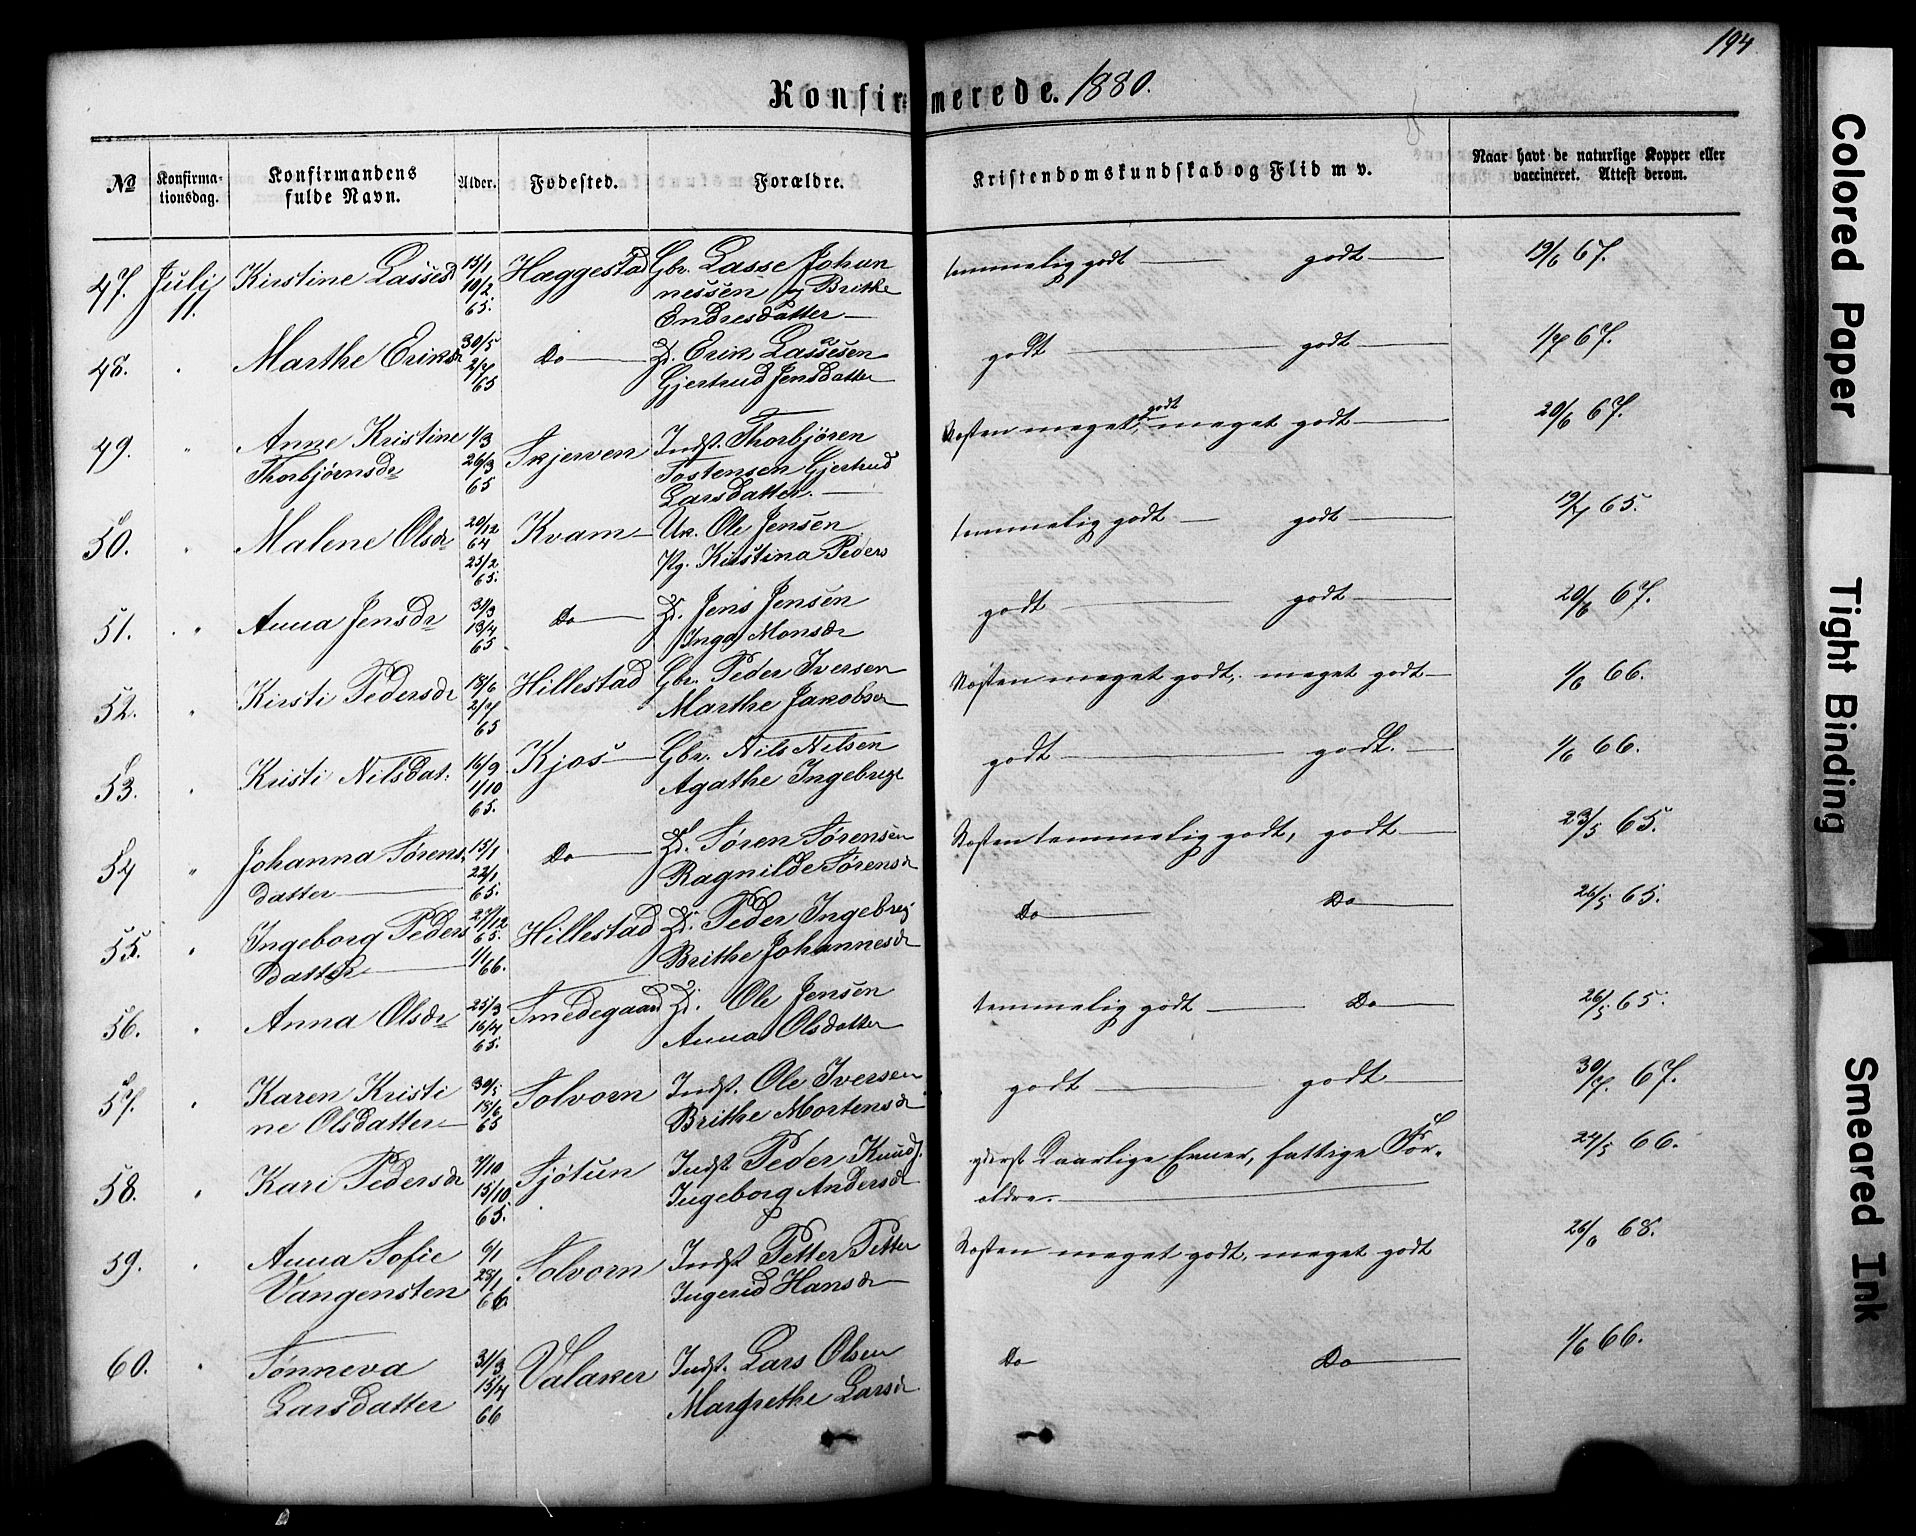 194
Konfirmerede. 1880.
No Konfirmationsdag. Konfirmandens fulde Navn. Alder. Fødested. Forældre. Kristendomskundskab og Flid m v. Naar havt de naturlige Kopper eller vaccineret. Attest derom.
47. Juli 11. Kirstine Lassesd 15/1 10/2 65. Hæggestad Gbr. Lasse Johannessen og Brithe Endresdatter temmelig godt godt 19/6 67.
48. " Marthe Eriksdr 30/5 2/7 65 Do D. Erik Lassesen Gjertrud Jensdatter godt godt 1/7 67.
49. " Anne Kristine Thorbjørnsdr 1/3 26/3 65 Skjerven Indst. Thorbjören Tostensen Gjertrud Larsdatter. Næsten meget godt, meget godt 20/6 67.
50. " Malene Olsdr 20/12 64 25/2 65. Kvam Uk. Ole Jensen Pg. Kirstina Peders temmelig godt godt 19/7 65.
51. " Anna Jensdr 31/3 13/4 65 Do D. Jens Jensen Inga Monsdr godt godt 20/6 67.
52. " Kirsti Pedersdr 18/6 2/7 65 Hillestad Gbr. Peder Iversen Marthe Jakobsdr Næsten meget godt, meget godt 1/6 66.
53. " Kristi Nilsdat. 16/9 1/10 65. Kjos Gbr. Nils Nilsen Agathe Ingebrigt godt godt. 1/6 66.
54 " Johanna Sørensdatter 15/1 22/1 65. Do D. Søren Sørensen Ragnilde Sørensd Næsten temmelig godt, godt 23/5 65.
55. " Ingeborg Pedersdatter 27/12 65. 1/1 66. Hillestad D. Peder Ingebrig Brithe Johannesdr Do Do 26/5 65.
56. " Anna Olsdr 25/3 16/4 65. Smedegaard D. Ole Jensen Anna Olsdatter temmelig godt Do 26/5 65.
57. " Karen Kristine Olsdatter 30/5 18/6 65 Solvorn Indst. Ole Iversen Brithe Mortensdr godt godt 30/7. 67.
58. " Kari Pedersdr 7/10 15/10. 65. Sjøtun Indst. Peder Knuds. Ingeborg Andersdr yderst daarlige Evner, fattige Forældre. 24/5 66.
59. " Anna Sofie Vangensten 6/1 28/1 66. Solvorn Indst Petter Petter Ingerid Hansdr Næsten meget godt, meget godt 26/6 68.
60. " Sønneva Larsdatter 31/3 15/4 66 Valaker Indst. Lars Olsen Margrethe Larsdr. Do Do 1/6 66.
Colored Paper
Tight Binding
Smeared Ink